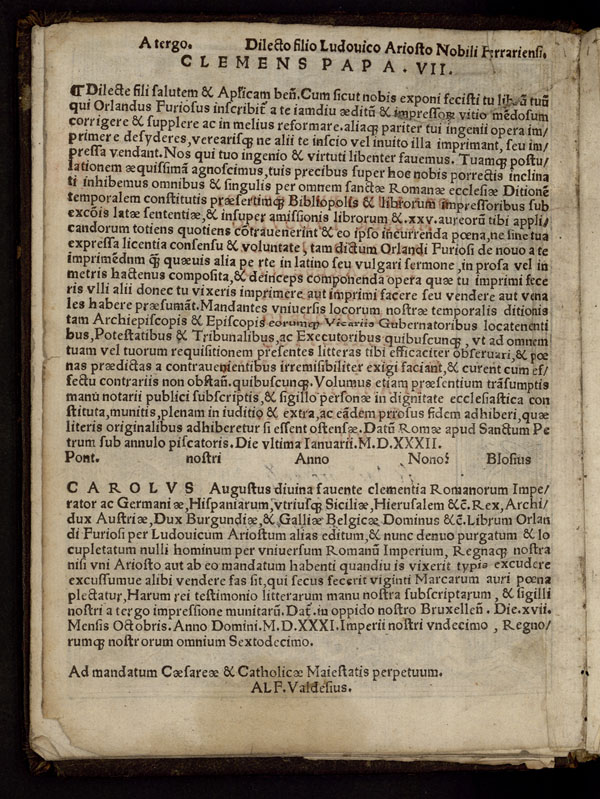 A tergo. Dilecto filio Ludouico Ariosto Nobili Ferrariensi.
CLEMENS PAPA. VII.
¶ Dilecte fili salutem & Apsicam beñ. Cum sicut nobis exponi fecisti tu librũ tuũ
qui Orlandus Furiosus inscribit̃ a te iamdiu æditũ & impressorẽ vitio mẽdosum
corrigere & supplere ac in melius reformare. aliaqꝫ pariter tui ingenii opera im/
primere desyderes, verearisqꝫ ne alii te inscio vel inuito illa imprimant, seu im/
pressa vendant. Nos qui tuo ingenio & virtuti libenter fauemus. Tuamqꝫ postu/
lationem æquissimã agnoscimus, tuis precibus super hoc nobis porrectis inclina
ti inhibemus omnibus & singulis per omnem sanctæ Romanæ ecclesiæ Ditionẽ
temporalem constitutis præsertimqꝫ Bibliopolis & librorum impressoribus sub
excõis latæ sententiæ, & insuper amissionis librorum &. xxv. aureorũ tibi appli/
candorum totiens quotiens cõtrauenerint & eo ipso incurrenda pœna, ne sine tua
expressa licentia consensu & voluntate, tam dictum Orlandi Furiosi de nouo a te
imprimẽdum qꝫ quæuis alia per te in latino seu vulgari sermone, in prosa vel in
metris hactenus composita, & deinceps componenda opera quæ tu imprimi fece
ris vlli alii donec tu vixeris imprimere aut imprimi facere seu vendere aut vena
les habere præsumãt. Mandantes vniuersis locorum nostræ temporalis ditionis
tam Archiepiscopis & Episcopis eorumqꝫ Vicariis Gubernatoribus locatenenti
bus, Potestatibus & Tribunalibus, ac Executoribus quibuscunqꝫ, vt ad omnem
tuam vel tuorum requisitionem presentes litteras tibi efficaciter obseruari, & pœ
nas prædictas a contrauenientibus irremisibiliter exigi faciant, & curent cum ef/
fectu contrariis non obstañ. quibuscunqꝫ. Volumus etiam præsentium trãsumptis
manu notarii publici subscriptis, & sigillo personæ in dignitate ecclesiastica con
stituta, munitis, plenam in iuditio & extra, ac eãdem prrosus fidem adhiberi, quæ
literis originalibus adhiberetur si essent ostensæ. Datũ Romæ apud Sanctum Pe
trum sub annulo piscatoris. Die vltima Ianuarii. M.D.XXXII.
Pont. nostri Anno Nono: Blosius
CAROLVS Augustus diuina fauente clementia Romanorum Impe/
rator ac Germaniæ, Hispaniarum, vtriusqꝫ Siciliæ, Hierusalem &c̃. Rex, Archi/
dux Austriæ, Dux Burgundiæ, & Galliæ Belgicæ Dominus &c̃. Librum Orlan
di Furiosi per Ludouicum Ariostum alias editum, & nunc denuo purgatum & lo
cupletatum nulli hominum per vniuersum Romanũ Imperium, Regnaqꝫ nostra
nisi vni Ariosto aut ab eo mandatum habenti quandiu is vixerit typis excudere
excussumue alibi vendere fas sit, qui secus fecerit viginti Marcarum auri pœna
plectatur, Harum rei testimonio litterarum manu nostra subscriptarum, & sigilli
nostri a tergo impressione munitarũ. Dat̃. in oppido nostro Bruxelleñ. Die. xvii.
Mensis Octobris. Anno Domini. M.D.XXXI. Imperii nostri vndecimo, Regno/
rumqꝫ nostrorum omnium Sextodecimo.
Ad mandatum Cæsareæ & Catholicæ Maiestatis perpetuum.
ALF. Valdesius.